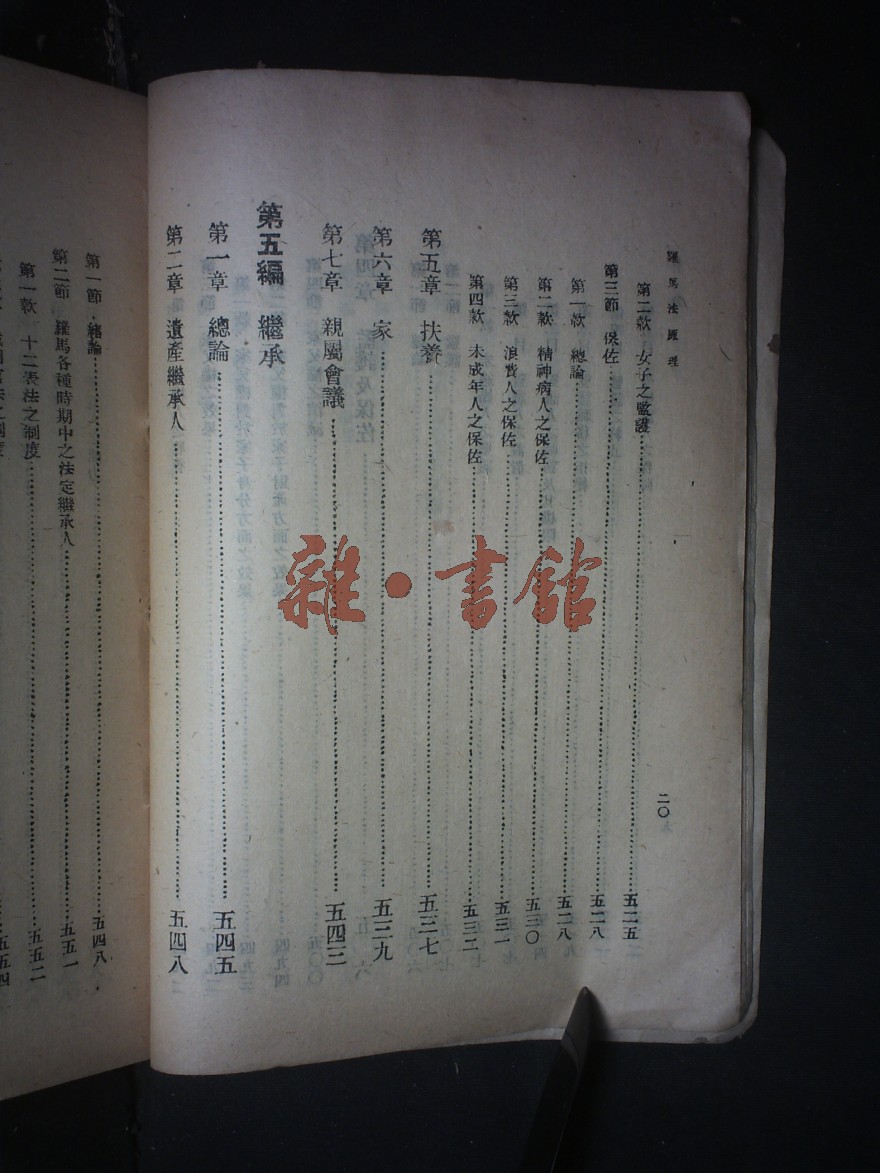 羅馬法原理
二〇
第二款 女子之監護 五二五
第三節 保佐 五二八
第一款 總論 五二八
第二款 精神病人之保佐 五三〇
第三款 浪費人之保佐 五三一
第四款 未成年人之保佐 五三二
第五章 扶養 五三七
第六章 家 五三九
第七章 親屬會議 五四三
第五編 繼承
第一章 總論 五四五
第二章 遺產繼承人 五四八
第一節 緒論 五四八
第二節 羅馬各種時期中之法定繼承人 五五一
第一款 十二表法之制度 五五二
五五四
雜·書館